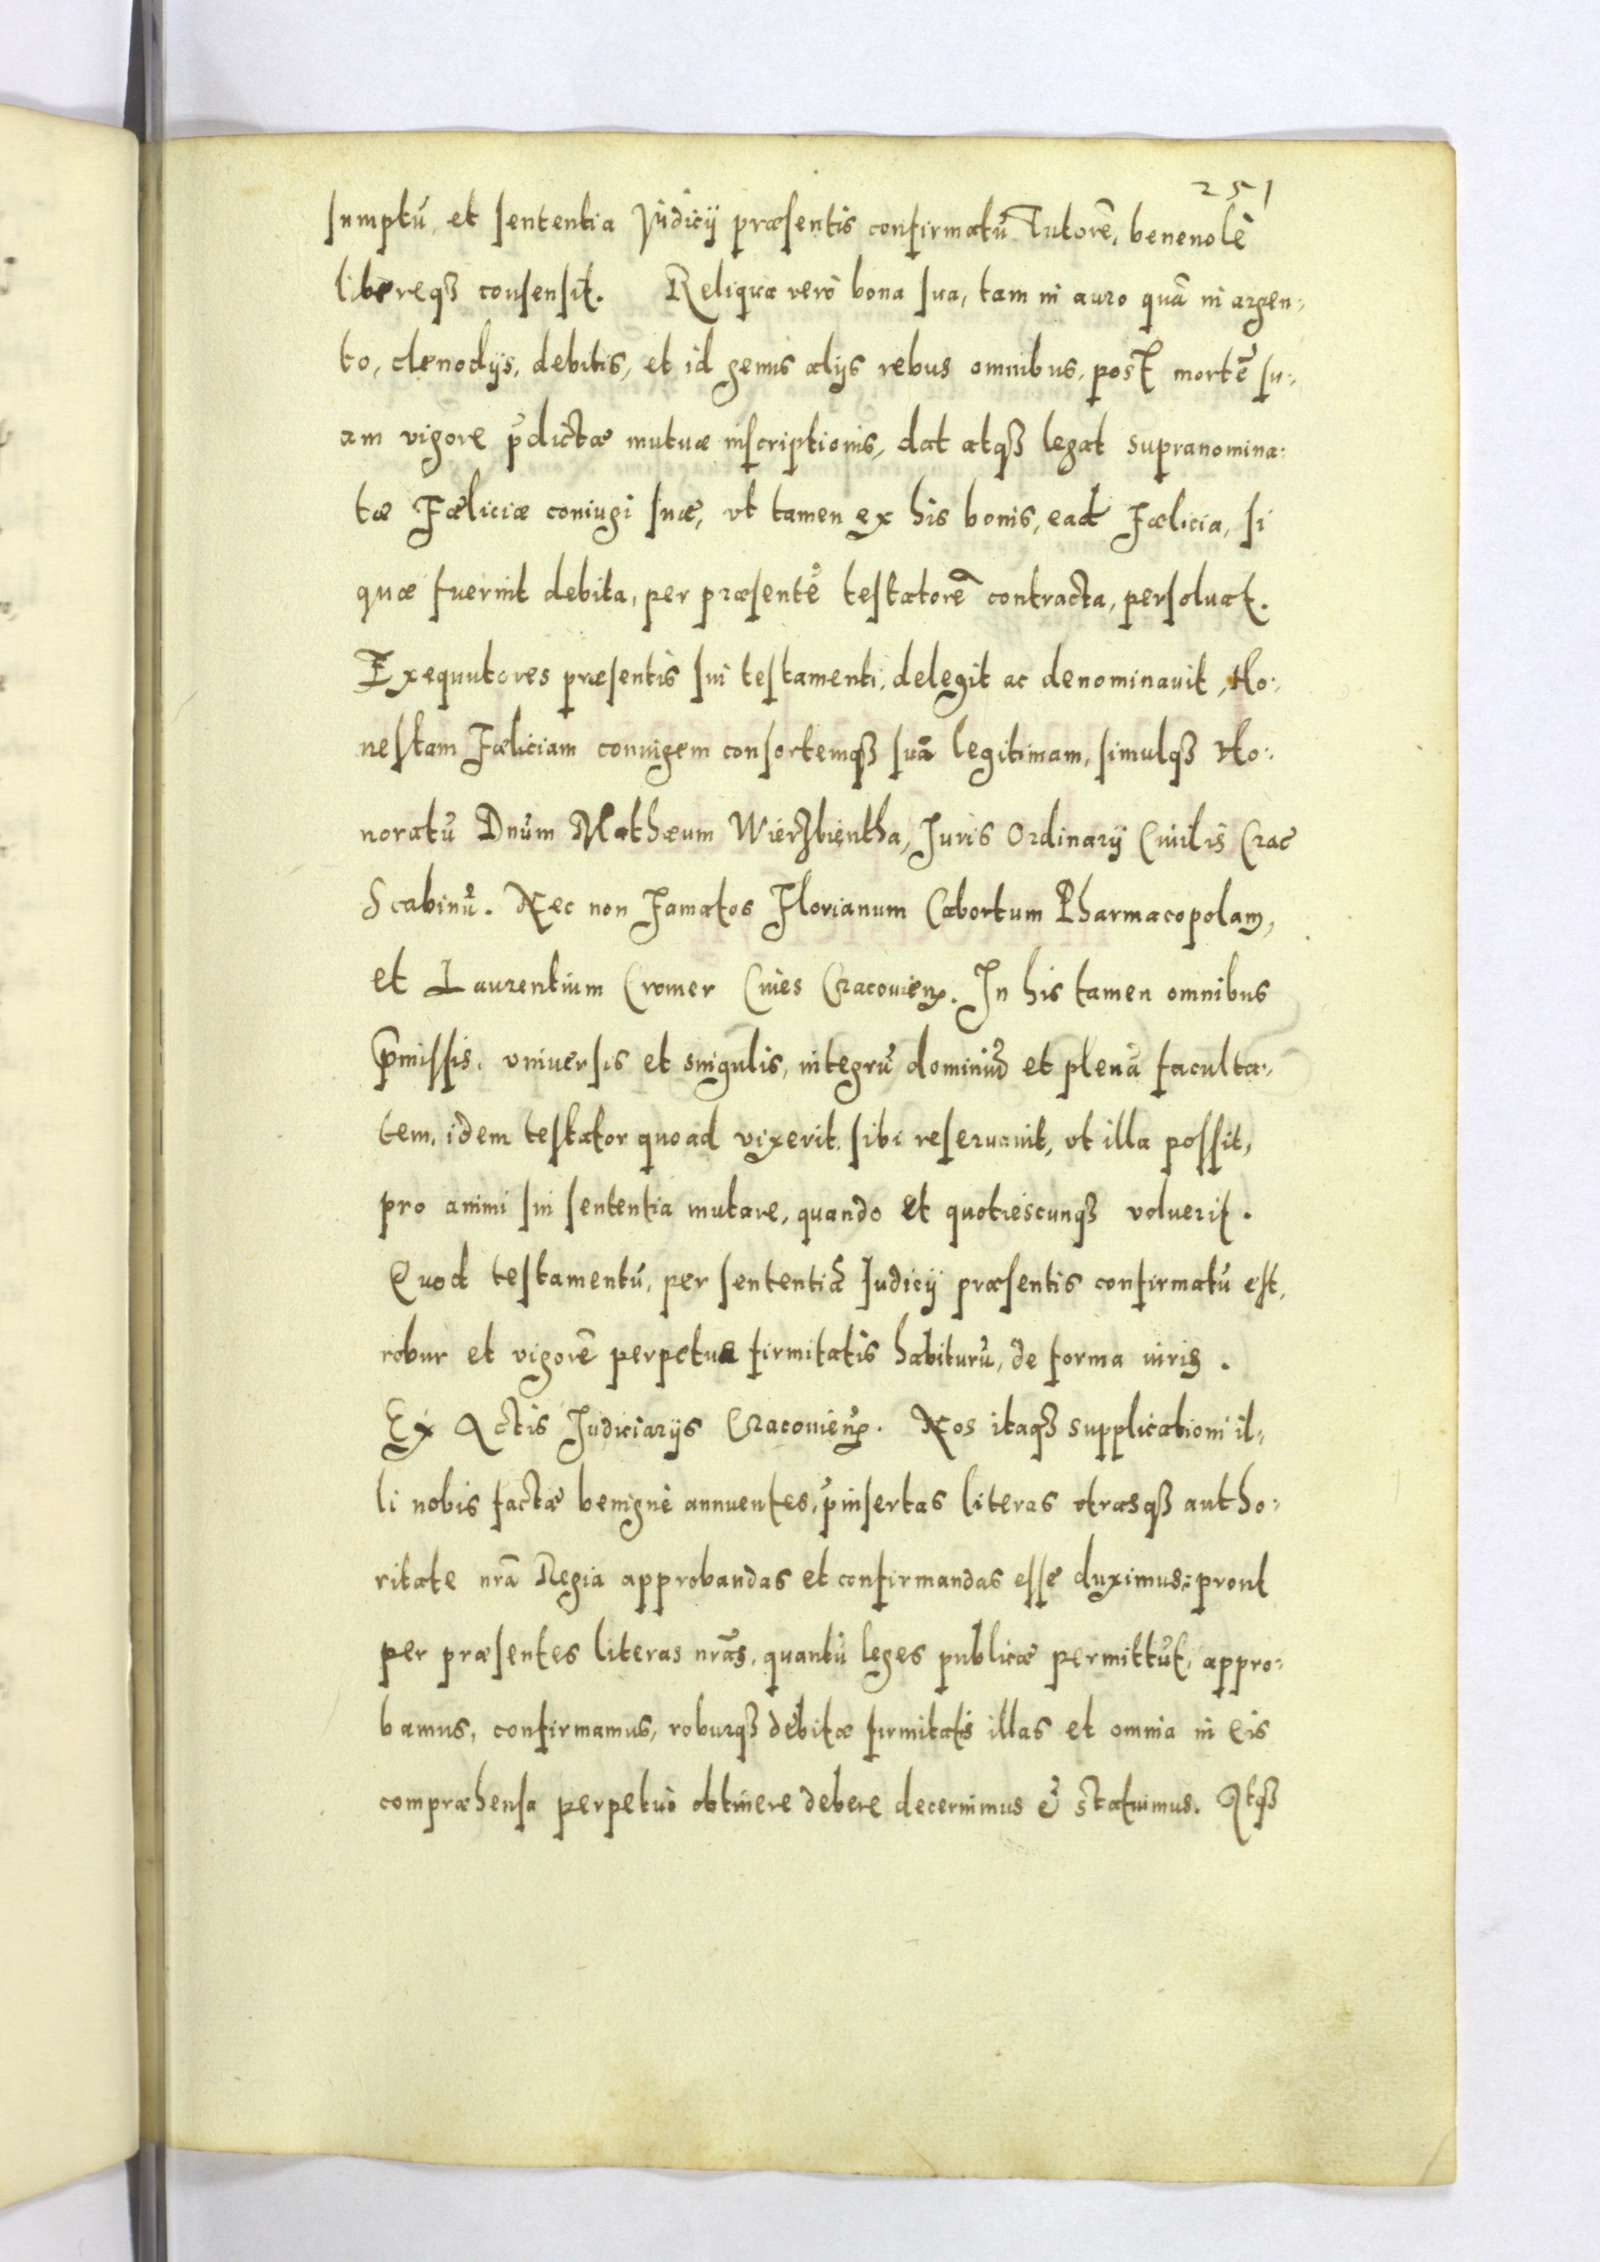 251
sumptũ, et sententia Judicij præsentis confirmatũ Tutorẽ, beneuolè
libereqȝ consensit. Reliqua verò bona sua, tam in auro quã in argen-
to, clenodijs, debitis, et id genus alijs rebus omnibus, post mortẽ su-
am vigore p̃dictæ mutuæ inscriptionis, dat atqȝ legat supranomina-
tæ Fæliciæ coniugi suæ, vt tamen ex his bonis, ead Fælicia, si
quæ fuerint debita, per præsentẽ testatorẽ contracta, persoluat.
Exequutores præsentis sui testamenti, delegit ac denominauit, Ho-
nestam Fæliciam coniugem consortemqȝ suã legitimam, simulqȝ Ho-
noratũ Dnũm Mathæum Wierzbientha, Juris Ordinarij Ciuilis Crac
Scabinũ. Nec non Famatos Florianum Cabortum Pharmacopolam,
et Laurentium Cromer Ciues Cracouien. In his tamen omnibus
p̃missis, vniuersis et singulis, integrũ dominiũ et plenã faculta-
tem, idem testator quoad vixerit sibi reseruauit, vt illa possit,
pro animi sui sententia mutare, quando et quotiescunqȝ voluerit.
Quod testamentũ, per sententiã Judicij præsentis confirmatũ est,
robur et vigorẽ perpetuæ firmitatis habiturũ, de forma iuris.
Ex Actis Judiciarijs Cracouien. Nos itaqȝ supplicationi il-
li nobis factæ benignè annuentes, p̃insertas literas vtrasqȝ autho-
ritate nr̃a Regia approbandas et confirmandas esse duximus: prout
per præsentes literas nr̃as, quantũ leges publicæ permittũt, appro-
bamus, confirmamus, roburqȝ debitæ firmitatis illas et omnia in eis
compræhensa perpetuò obtinere debere decernimus & statuimus. Atqȝ